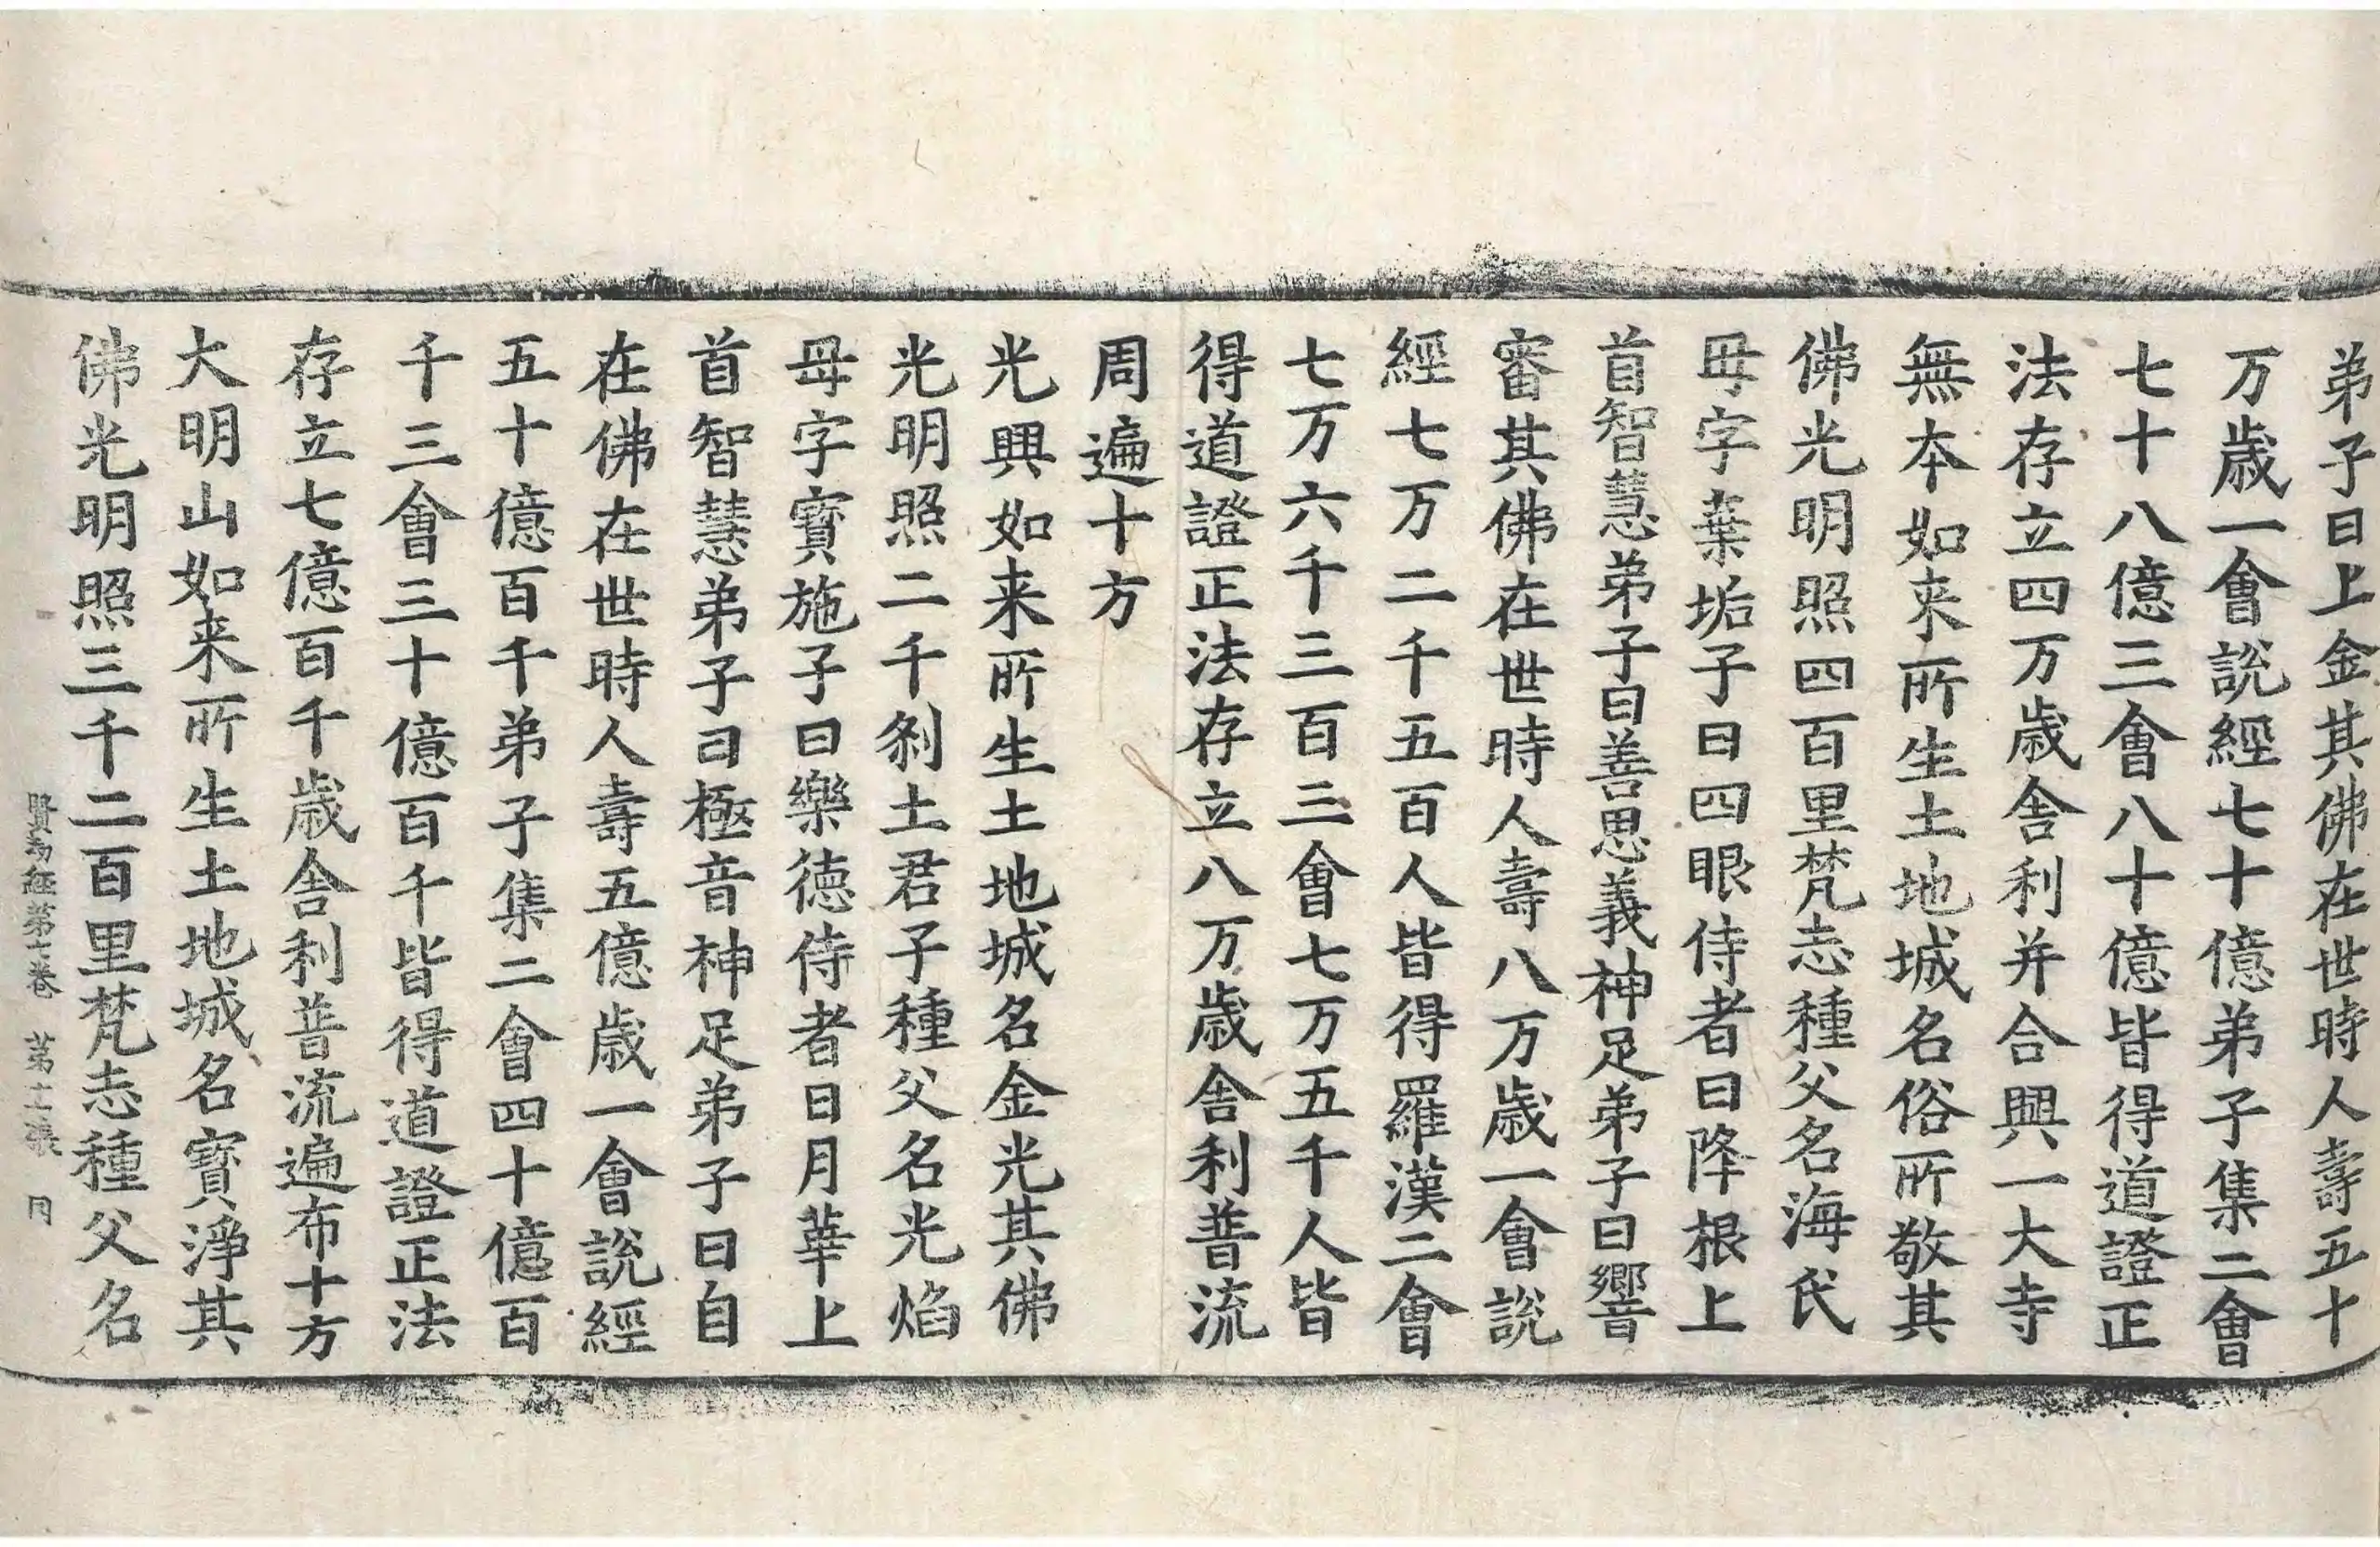 弟子曰上金其佛在世時人壽五十
万歳一會説經七十億弟子集二會
七十八億三會八十億皆得道證正
法存立四万歳舎利并合興一大寺
無本如来所生土地城名俗所敬其
佛光明照四百里梵志種父名海氏
母字棄垢子曰四眼侍者曰降根上
首智慧弟子曰善思義神足弟子曰響
審其佛在世時人壽八万歳一會説
經七万二千五百人皆得羅漢二會
七万六千三百三會七万五千人皆
得道證正法存立八万歳舎利普流
周遍十方
光興如来所生土地城名金光其佛
光明照二千剎土君子種父名光焰
母字寳施子曰樂德侍者日月華上
首智慧弟子曰極音神足弟子曰自
在佛在世時人壽五億歳一會説經
五十億百千弟子集二會四十億百
千三會三十億百千皆得道證正法
存立七億百千歳舎利普流遍布十方
大明山如来所生土地城名寳淨其
佛光明照三千二百里梵志種父名
賢劫經第七卷　第十二張　同